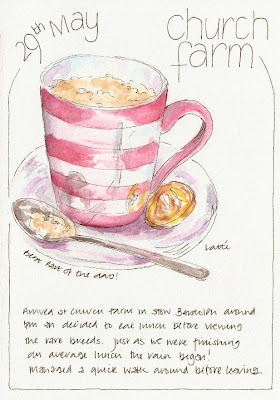 29th May
church
farm
Latté
best part of the day!
Arrived at Church Farm in Stow Bardolph around
1pm so decided to eat lunch before viewing
the rare breeds. Just as we were finishing
an average lunch the rain began!
Managed a quick walk around before leaving.